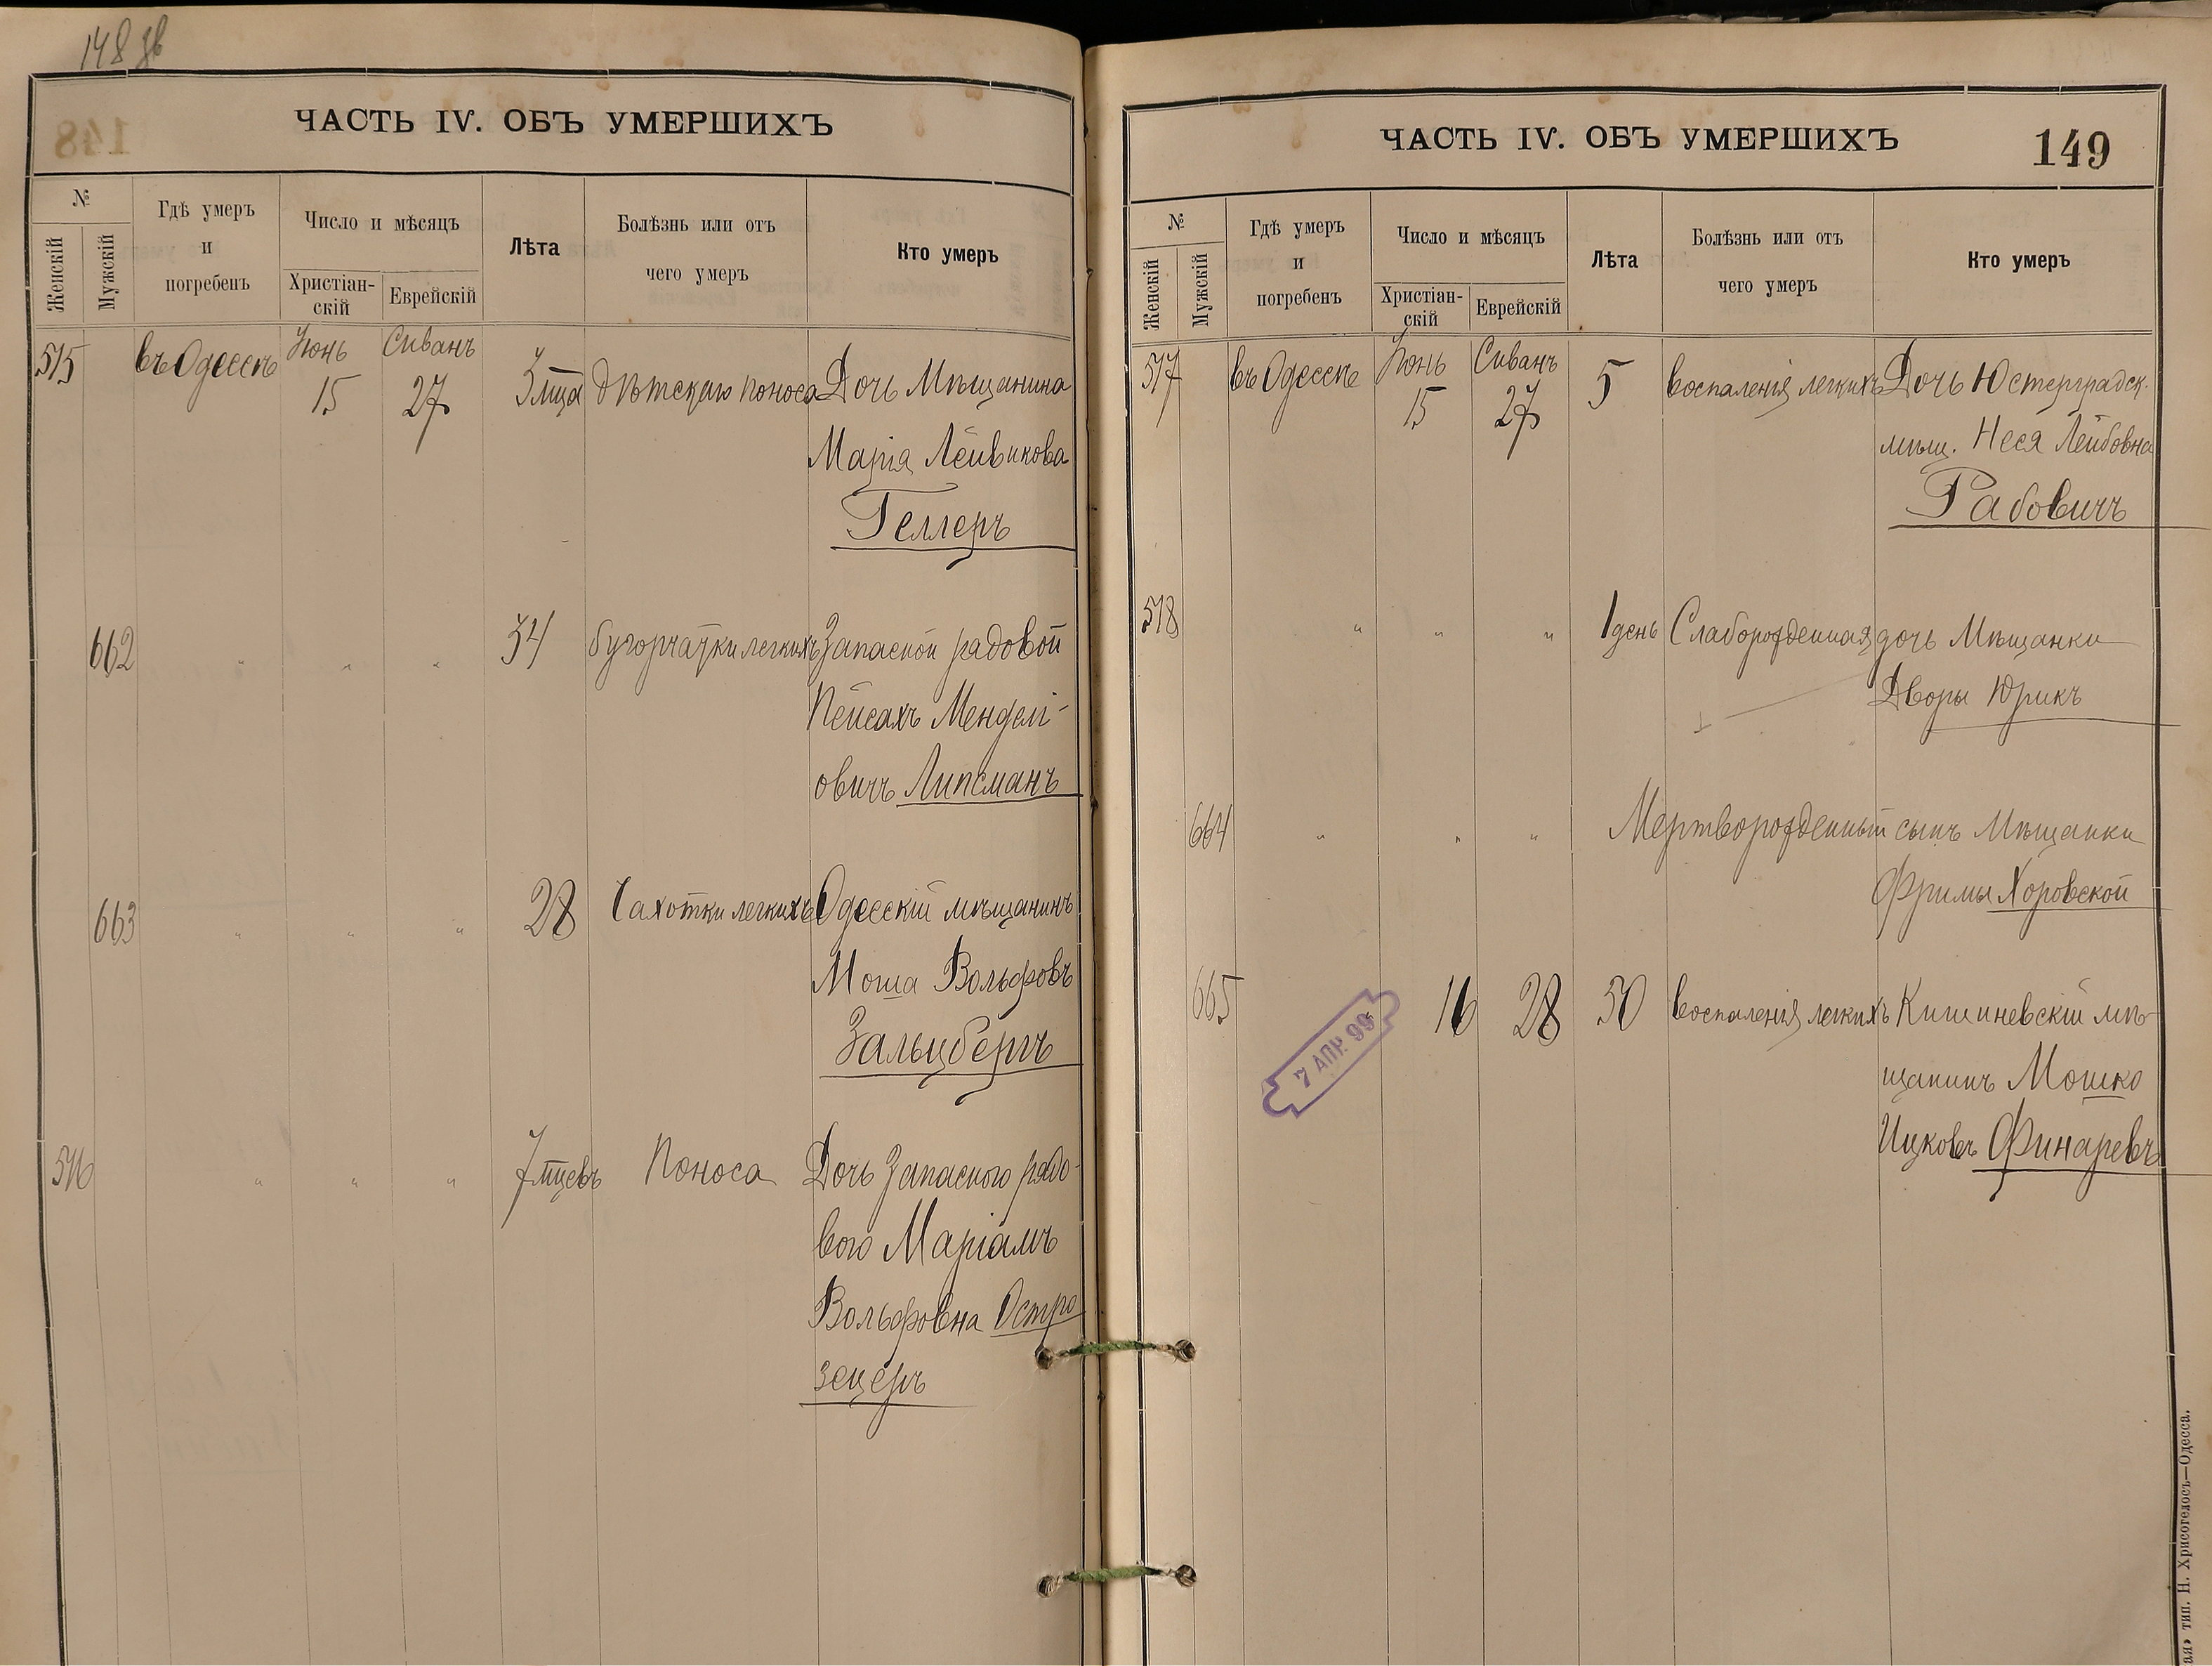 148 об
148
ЧАСТЬ IV. ОБЪ УМЕРШИХЪ
№
Женскій
Мужскій
Гдѣ умеръ
и
погребенъ
Число и мѣсяцъ
Христіан-
скій
Еврейскій
Лѣта
Болѣзнь или отъ
чего умеръ
Кто умеръ
515 въ Одессѣ Іюнь 15 Сиванъ 27 3 мца Дѣтскаго поноса Дочь Мѣщанина
Марія Лейвикова
Геллеръ
662 " " " 34 бугорчатки легкихъ Запасной рядовой
Пейсахъ Менделі-
овичъ Липсманъ
663 " " " 28 Чахотки легкихъ Одесскій мѣщанинъ
Моша Вольфовъ
Зальцбергъ
516 " " " 7 мцевъ Поноса Дочь Запасного рядо-
вого Маріамъ
Вольфовна Остро
зецеръ
ЧАСТЬ IV. ОБЪ УМЕРШИХЪ
149
№
Женскій
Мужскій
Гдѣ умеръ
и
погребенъ
Число и мѣсяцъ
Христіан-
скій
Еврейскій
Лѣта
Болѣзнь или отъ
чего умеръ
Кто умеръ
517 въ Одессѣ Іюнь 15 Сиванъ 27 5 воспаленія легкихъ Дочь Юстерградск.
мѣщ. Неся Лейбовна
Рабовичъ
518 " " " 1 день Слаборожденная дочь Мѣщанки
Дворы Юрикъ
664 " " " Мертворожденный сынъ Мѣщанки
Фримы Хоровской
665 16 28 50 воспаленія легкихъ Кишиневскій мѣ-
щанинъ Мошко
Ицковъ Финаревъ
7 АПР. 99
тип. Н. Хрисогелосъ—Одесса.